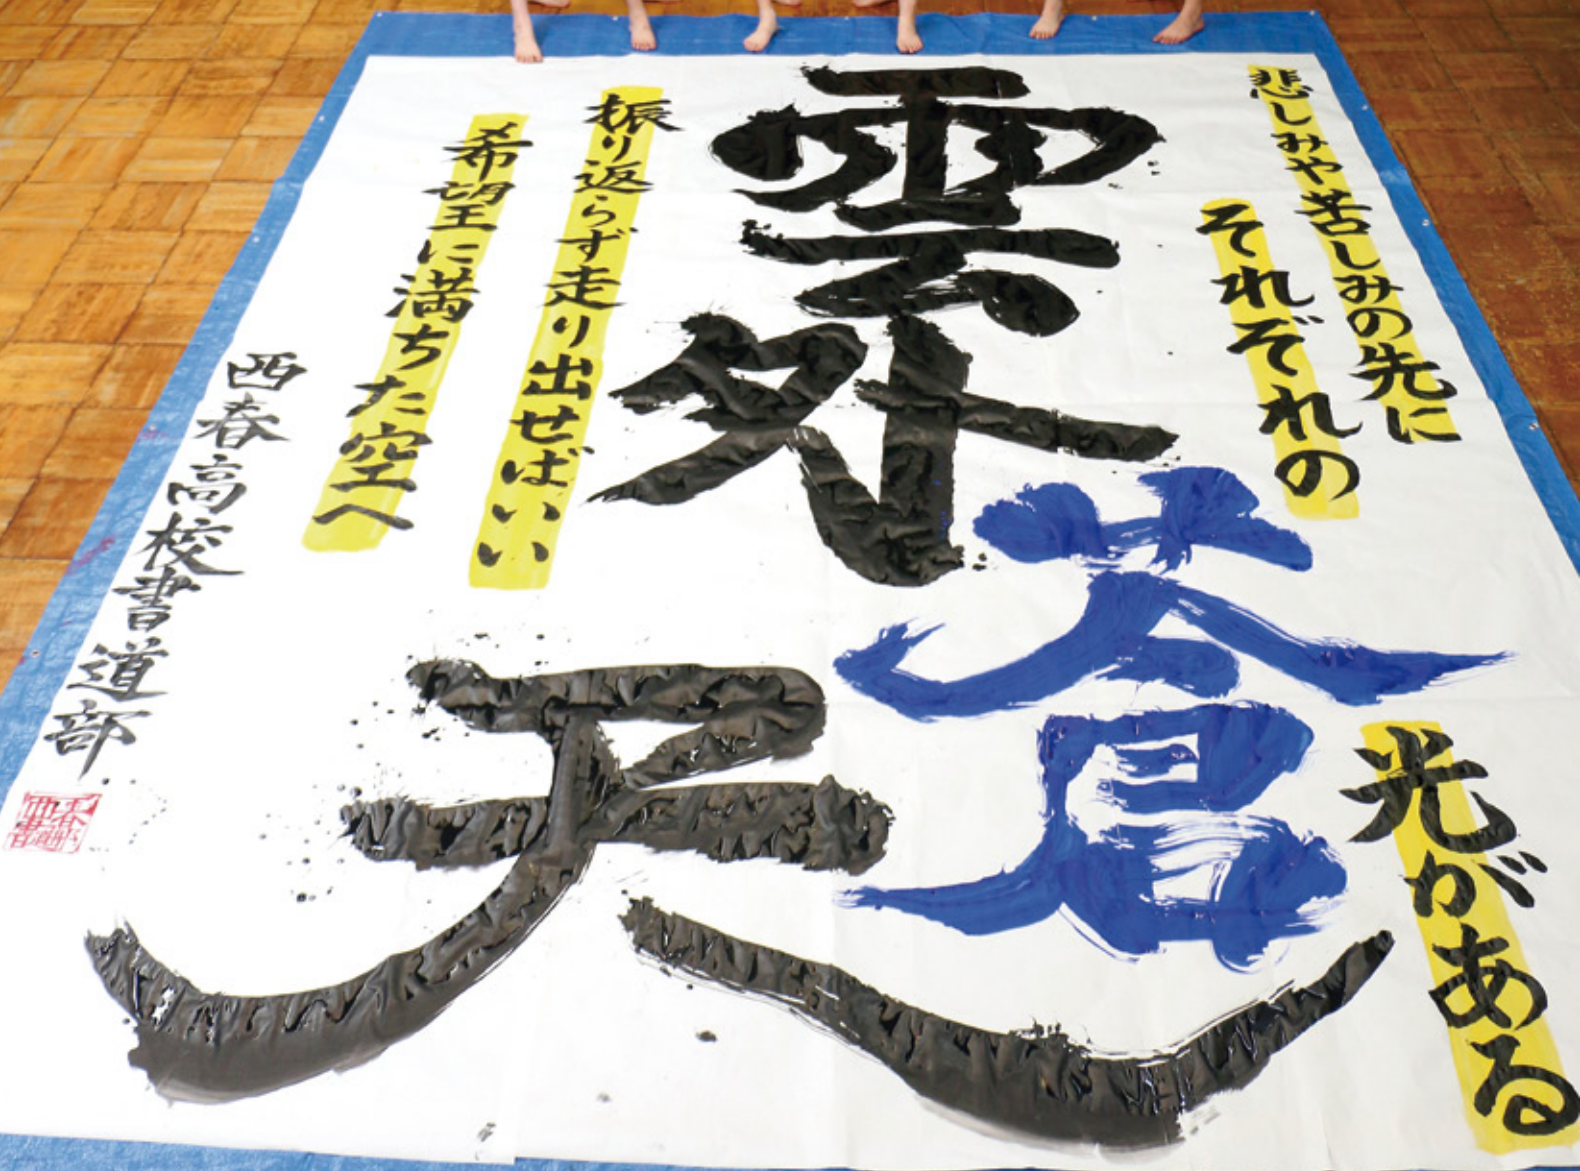 悲しみや苦しみの先に
それぞれの
光がある
雲外
蒼
天
振り返らず走り出せばいい
希望に満ちた空へ
西春高校書道部